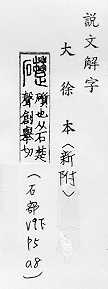 說文解字
大徐本〈新附〉
礎
礩也从石楚
聲創舉切
（石部V9下P5a.8）